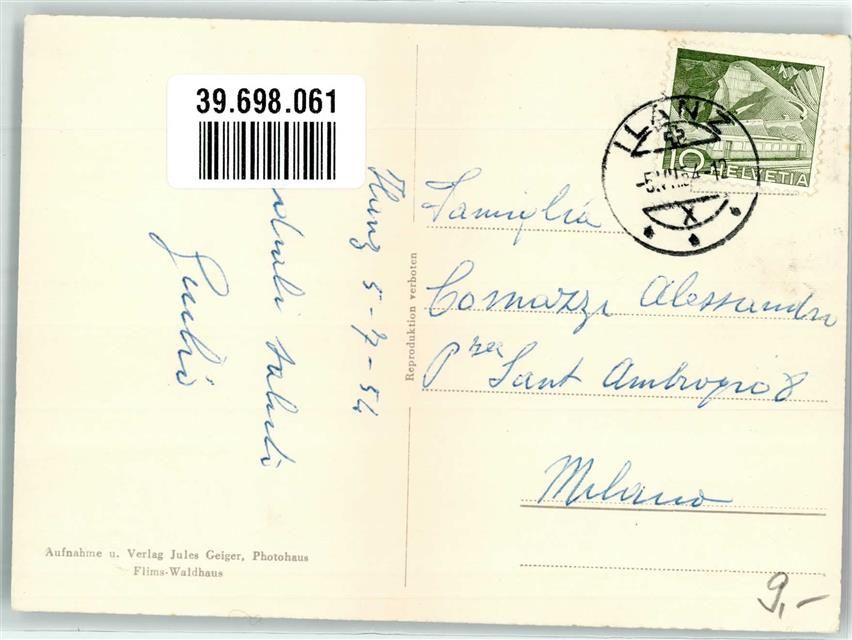 39.698.061
Ilanz 5-7-54
saluti
Giulio
Aufnahme u. Verlag Jules Geiger, Photohaus
Flims-Waldhaus
Reproduktion verboten
ILANZ
X
10
HELVETIA
Famiglia
Comazzi Alessandro
Pzza Sant Ambrogio 8
Milano
9,-